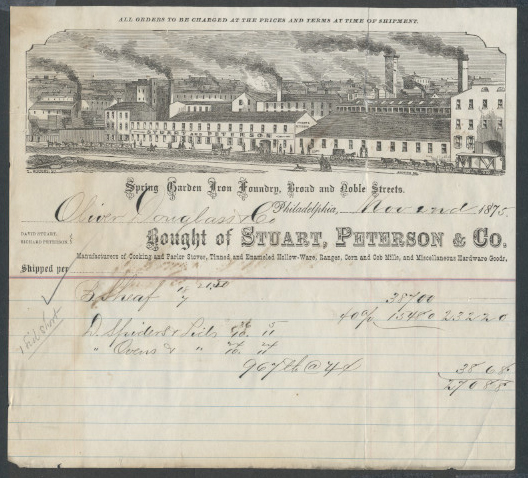 ALL ORDERS TO BE CHARGED AT THE PRICES AND TERMS AT TIME OF SHIPMENT.
Spring Garden Iron Foundry, Broad and Noble Streets.
Philadelphia, Nov 2nd 1875
Oliver Douglass & Co.
DAVID STUART,
RICHARD PETERSON,
Bought of STUART, PETERSON & CO.
Manufacturers of Cooking and Parlor Stoves, Tinned and Enameled Hollow-Ware, Ranges, Corn and Cob Mills, and Miscellaneous Hardware Goods,
Shipped per
Sheaf 7 21.50 387 00
40% 154 80 232 20
Spiders & Lids
" Ovens & "
967 lb @ 4 38 68
270 88